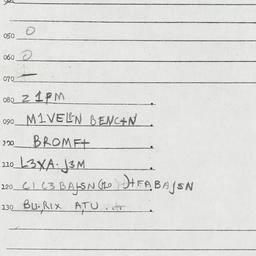 050 0
060 0
070 —
080 21PM
090 M1VELEN BENC+N
100 BROMF+
110 L3XA.J3M
120 C1C3BAJSN )+FABAJSN
130 BU.RIX ATU